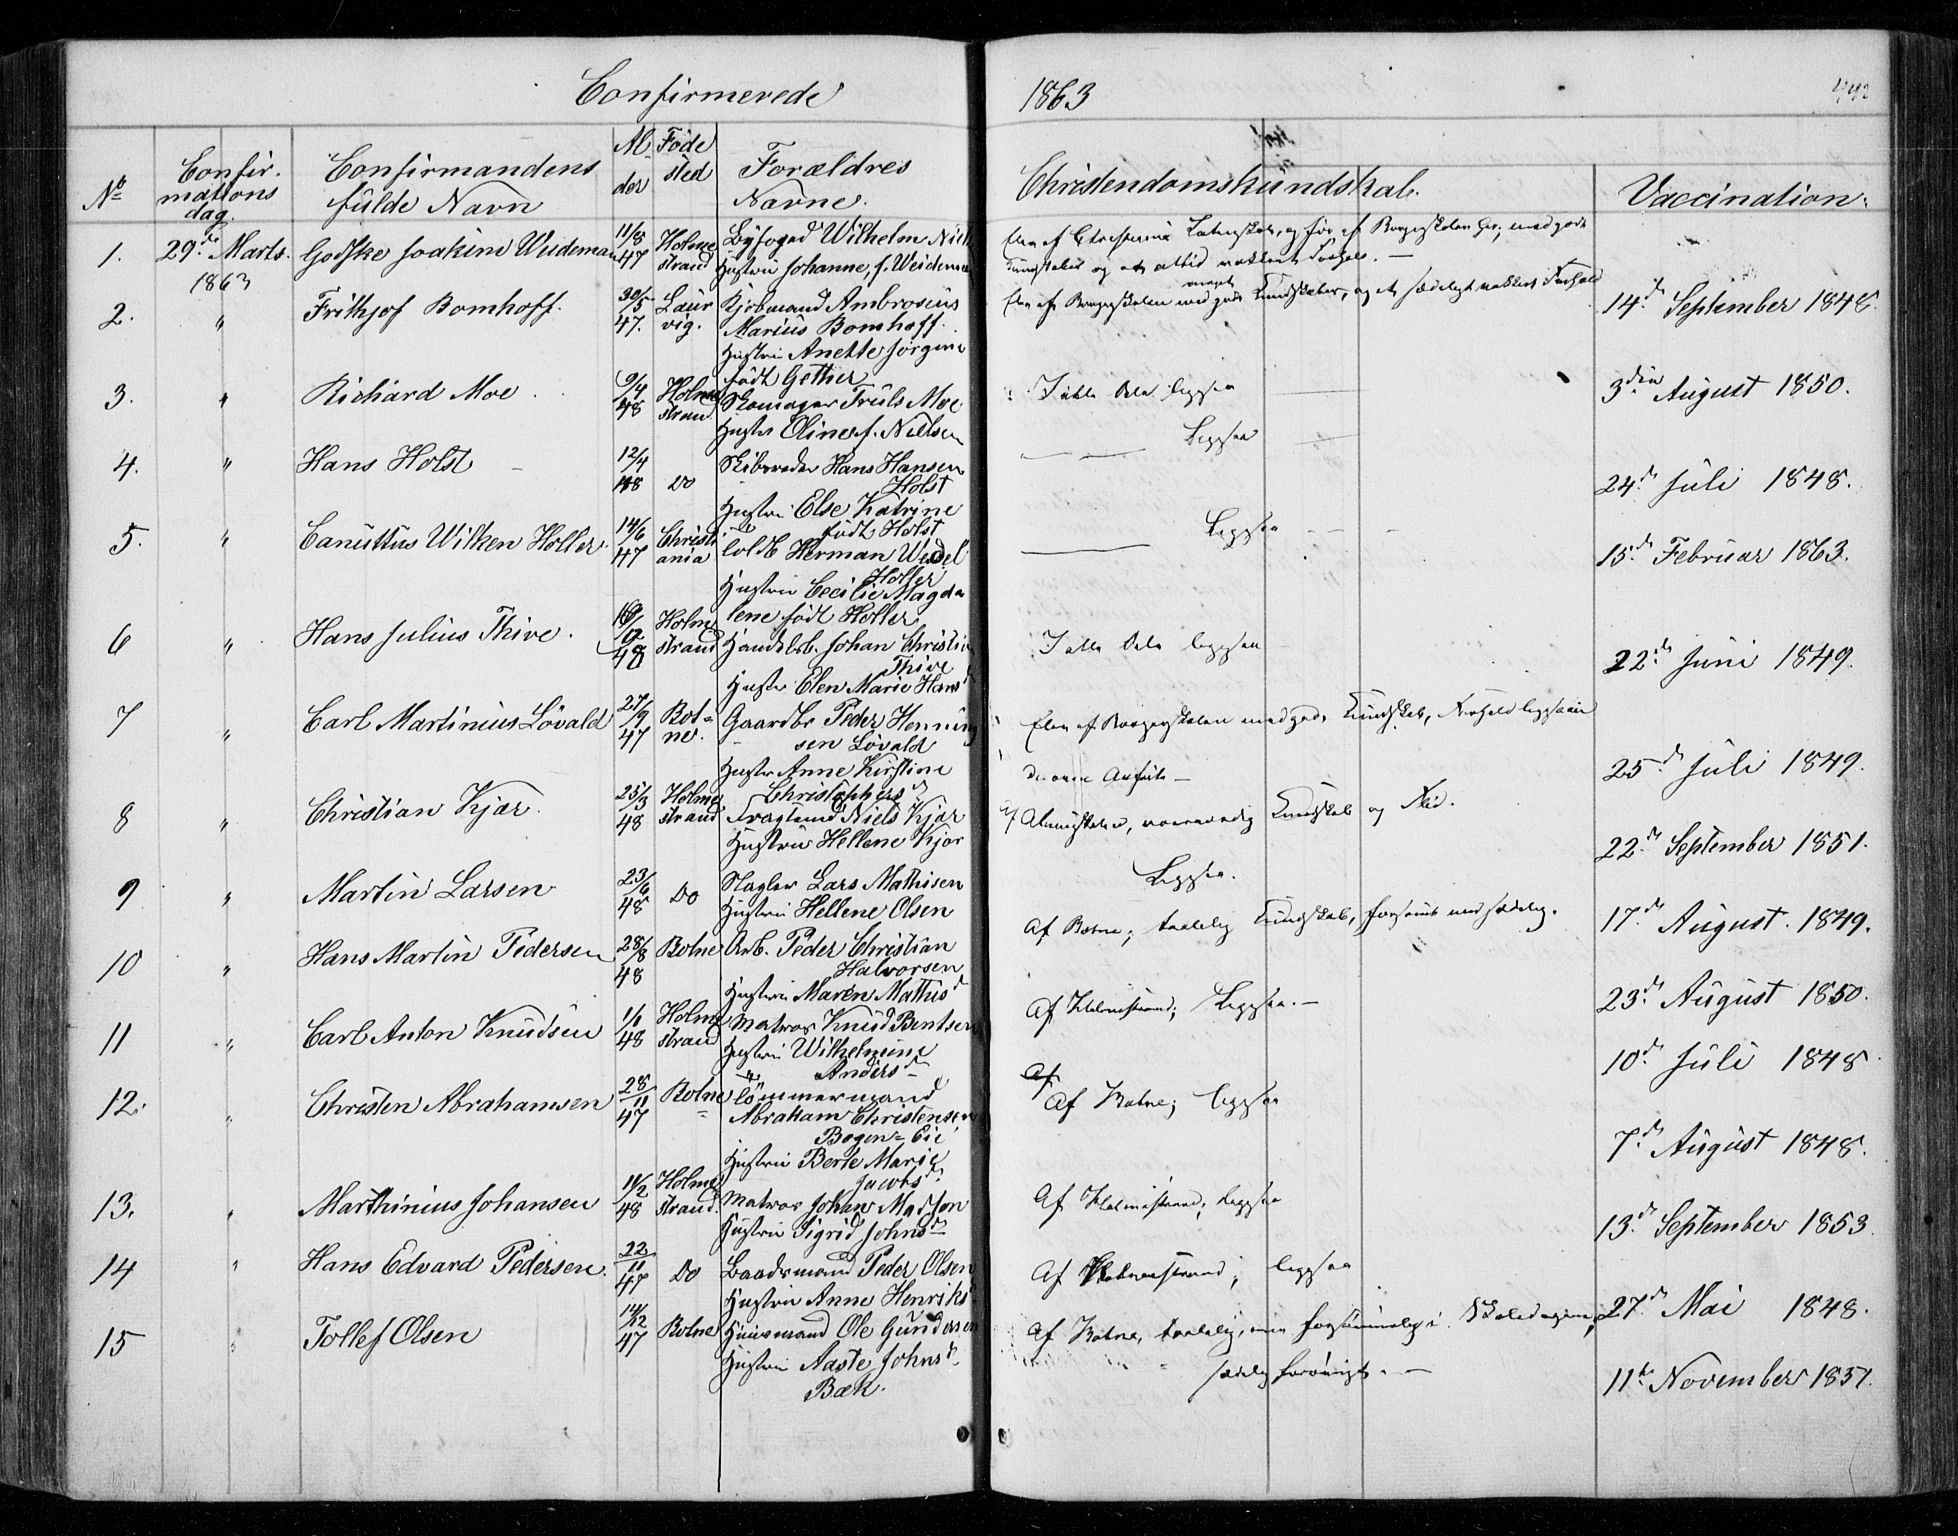 Confirmerede
1863
442
No
Confir-
mations
dag.
Confirmandens
fulde Navn
Al
der
Føde
sted
Forældres
Navne.
Christendomskundskab.
Vaccination.
1. 29de Marts. 1863 Godske Joakim Weideman 11/8 47 Holme strand Byfoged Wilhelm
Hustru Johanne, f. Weideman
2. " Frithjof Bomhoff. 30/5 47. Laur vig. Kjøbmand Ambrosius
Marius Bomhoff.
Hustru Anette Jørgine
født Gether
14de September 1848.
3. " Richard Moe 9/4 48 Holme strand. Skomager Truls Moe
Hustru Oline f. Nielsen
I alle Dele ligesaa
3die August 1850.
4. " Hans Holst 12/4 48 Do Skibsreder Hans Hansen
Holst
Hustru Else Katrine
født Holst
Ligesaa
24de Juli 1848.
5. " Canuttus Wilken Holler 14/6 47 Christi ania Toldb. Herman Wedel
Holler
Hustru Cecilie Magda
lene født Holler
Ligesaa
15de Februar 1863.
6 " Hans Julius Thive. /12 48 Holme strand Handelsb. Johan Christian
Thive
Hustru Elen Marie Hansd
I alle Dele ligesaa
22de Juni 1849.
7 " Carl Martinius Løvald 27/9 47 Bot= ne. Gaardbr Peder Henning
sen Løvald
Hustru Anne Kirstine
Christophersd
Elev af Borgerskolen med god Kundskab, Forhold ligesaa
25de Juli 1849.
8 " Christian Kjær. 25/3 48 Holme strand Fragtemd Niels Kjær
Hustru Hellene Kjær
Kundskab og Flid.
22de September 1851.
9 " Martin Larsen 23/6 48 Do Slagter Lars Mathisen
Hustru Hellene Olsen
Ligesaa.
17de August. 1849.
10 " Hans Martin Pedersen 28/8 48 Botne Arb. Peder Christian
Halvorsen
Hustru Maren Mathisd
Af Botne; taalelig Kundskab, forsømt med sædelig.
23de August 1850.
11 " Carl Anton Knudsen 1/1 48 Holme strand Matros Knud Bentsen
Hustru Wilhelmine
Andersd
Af Holmestrand; Ligesaa.
10de Juli 1848
12. " Christen Abrahamsen 28/11 47 Botne Tømmermand
Abraham Christensen
Bogen= Eie
Hustru Berte Marie
Jacobsd.
Af
Af Botne; ligesaa
7de August 1848.
13. " Marthinius Johansen 19/2 48 Holme strand. Matros Johan Madsen
Hustru Sigrid Johnsd
Af Holmestrand; ligesaa
13de September 1853
14 " Hans Edvard Pedersen. 22/11 47 Do Baadsmand Peder Olsen
Hustru Anne Henriks
Af Holmestrand; ligesaa
27de Mai 1848.
15 " Tollef Olsen 14/12 47 Botne Huusmand Ole Gundersen
Hustru Aaste Johnsd
Bæk.
Af Botne, taalelig, men forsømmelig i Skoledagene;
sædelig forøvrigt.
11te November 1857.